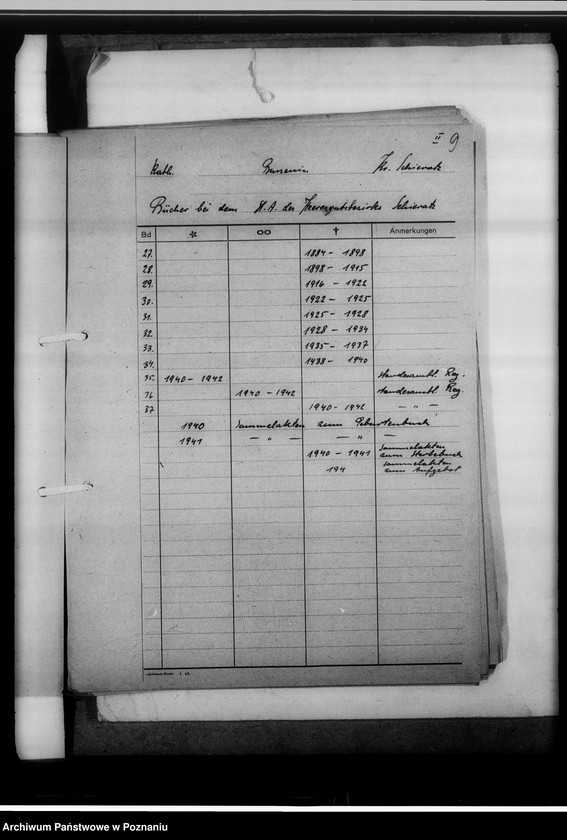 II 9
Kath. Burzenin Kr. Schieratz
Bücher bei dem St. A. des Heeresgutsbezirks Schieratz
Bd * ∞ † Anmerkungen
27. 1884 - 1898
28. 1898 - 1915
29. 1916 - 1922
30. 1922 - 1925
31. 1925 - 1928
32. 1928 - 1934
33. 1935 - 1937
34. 1938 - 1940
35. 1940 - 1942 standesamtl. Reg.
36 1940 - 1942 standesamtl. Reg.
37 1940 - 1942 — " —
1940 Sammelakten zum Geburtenbuch
1941 — " — — " —
1940 - 1941 Sammelakten zum Sterbebuch
194 Sammelakten zum Aufgebot
Archiwum Państwowe w Poznaniu